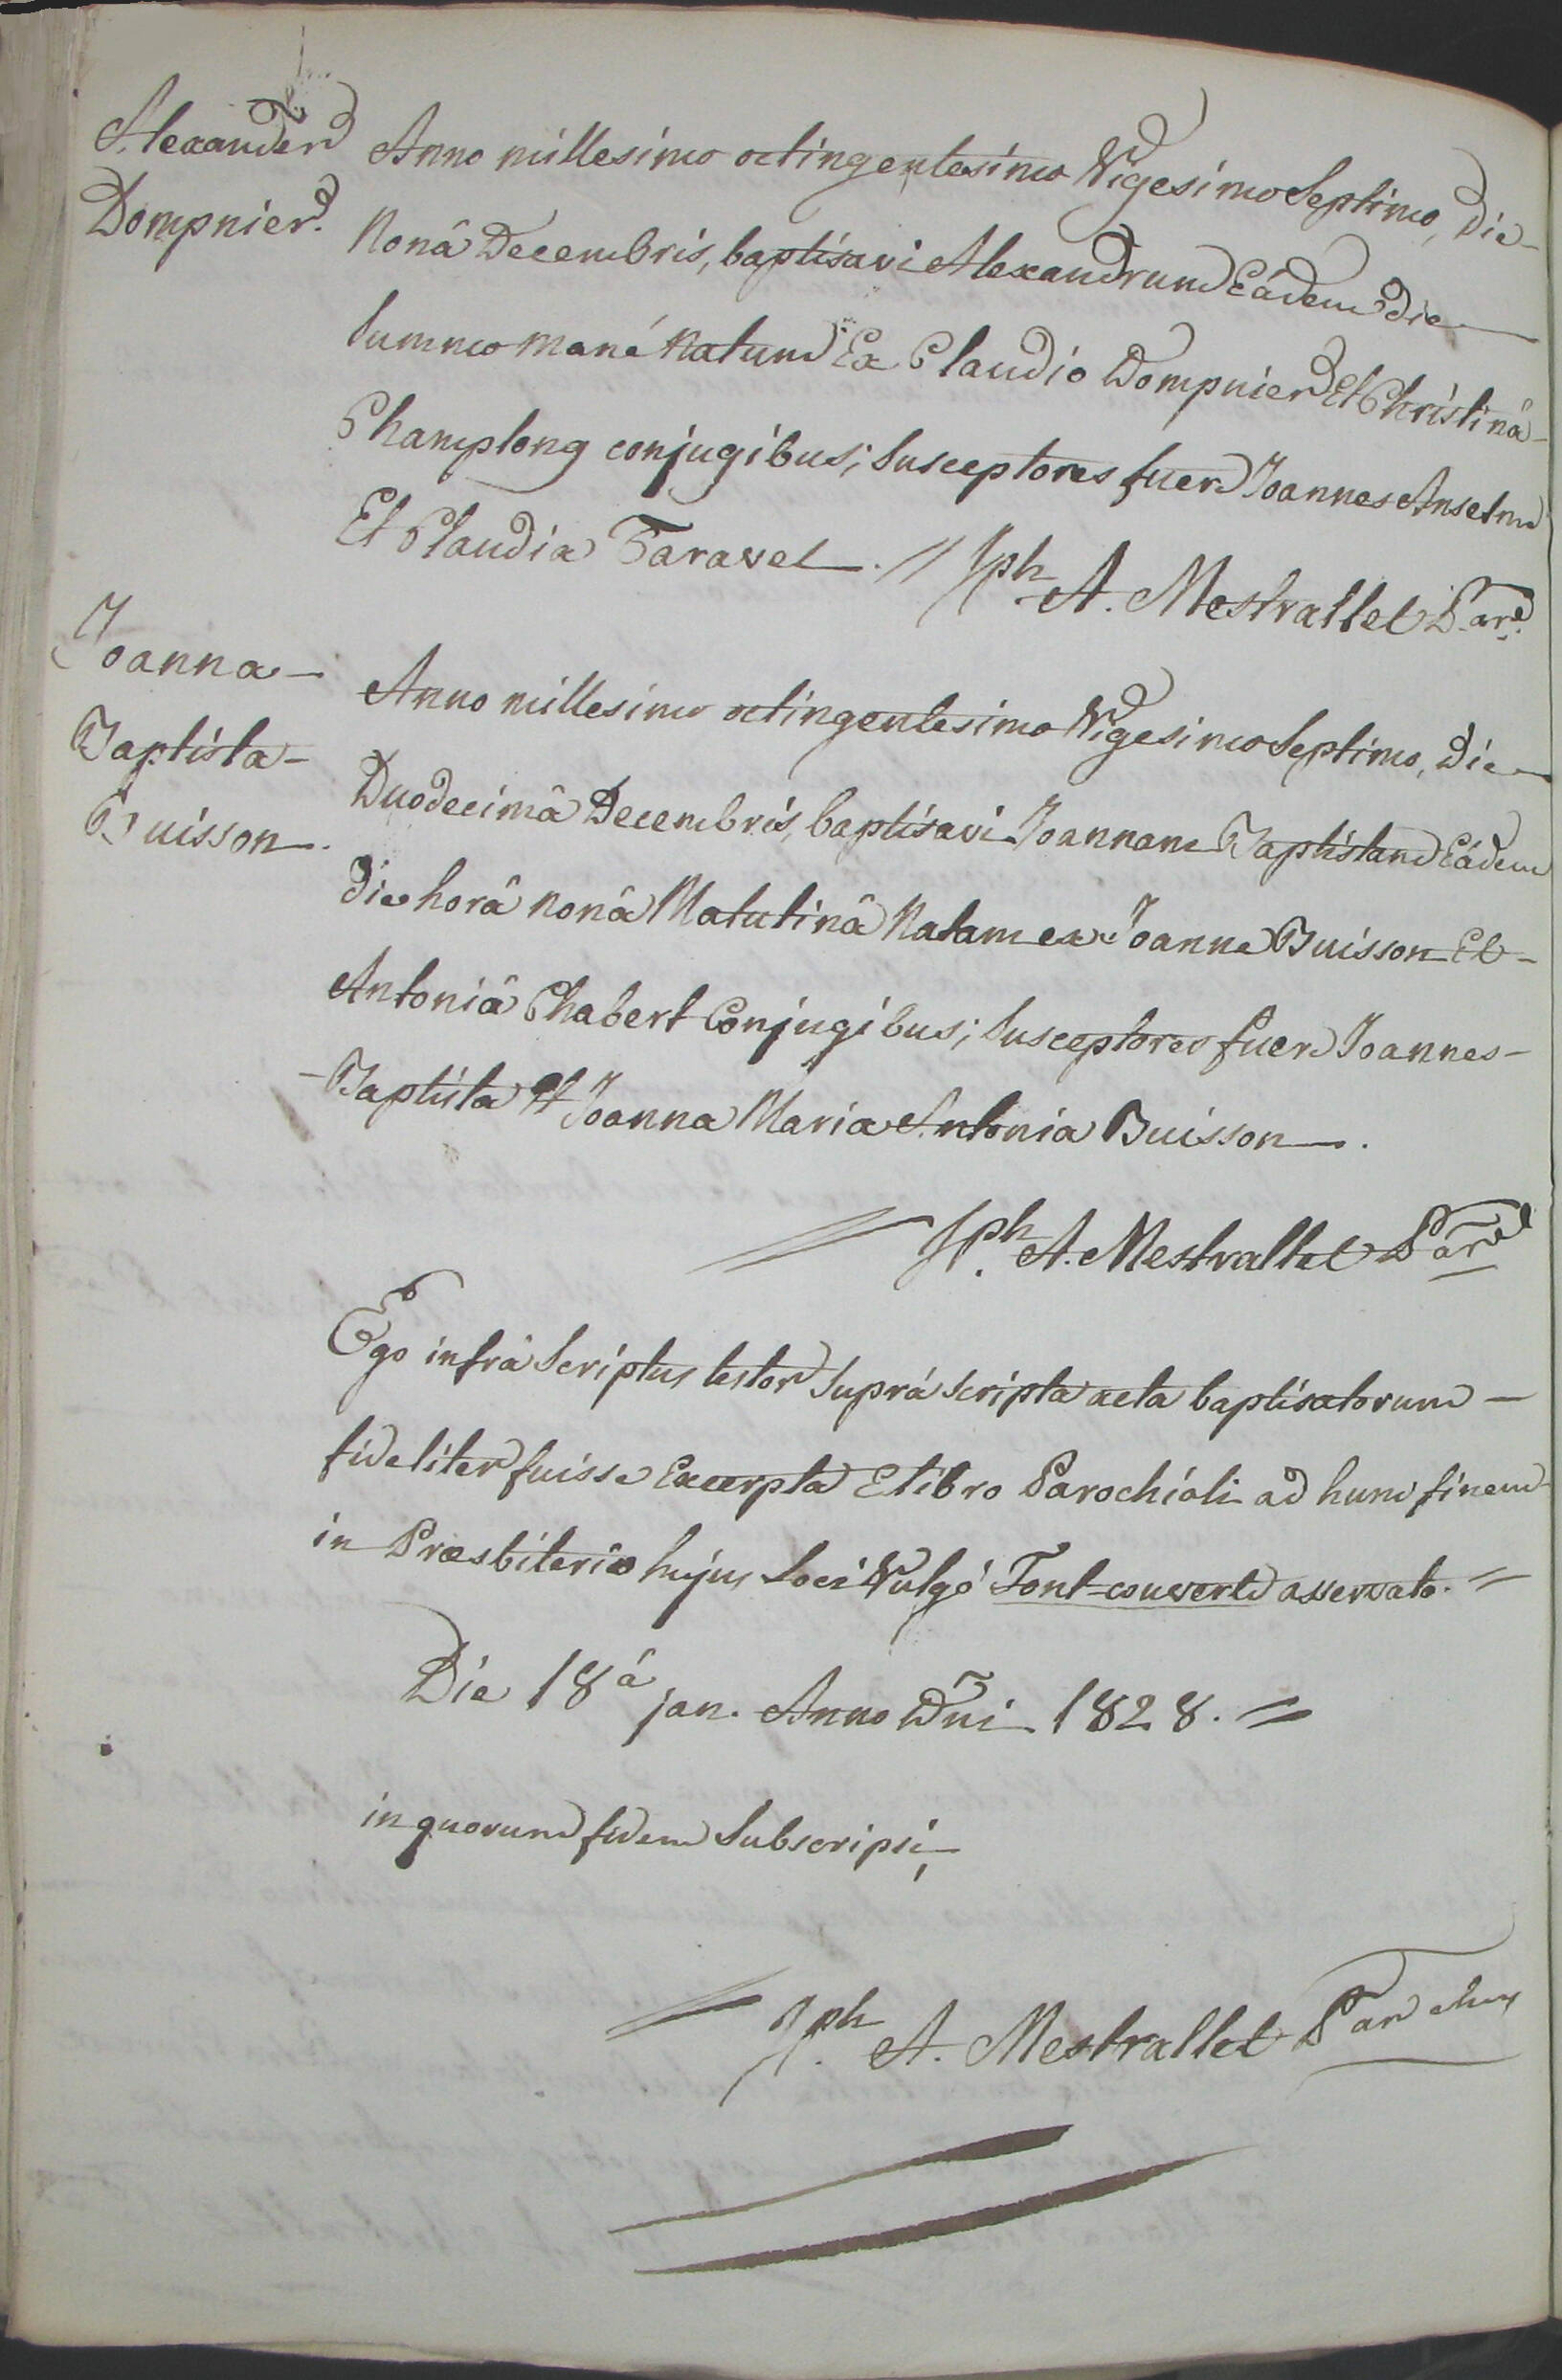 Alexander
Dompnier.
Anno millesimo octingentesimo Vigesimo Septimo, Die
Nonâ Decembris, baptisavi Alexandrum Eâdem Die
Summo mané Natum Ex Claudio Dompnier Et Christinâ
Champlong conjugibus; Susceptores fuer Joannes Anselm
Et Claudia Taravel. // Jph A. Mestrallet Par.
Joanna-
Baptista-
Buisson.
Anno millesimo octingentesimo Vigesimo Septimo, Die
Duodecimâ Decembris, baptisavi Joannam Baptistam Eâdem
Die horâ nonâ Matutinâ Natam ex Joanne Buisson Et
Antoniâ Chabert Conjugibus; Susceptores fuer Joannes-
-Baptista Et Joanna Maria Antonia Buisson.
// Jph. A. Mestrallet Par
Ego infrà Scriptus testor Suprà scripta acta baptisatorum
fideliter fuisse Excerpta E libro Parochiali ad hunc finem
in Præsbiterio hujus Loci Vulgó Font-couverte asservato. =
Die 18â jan. Anno Dni 1828. =
in quorum fidem Subscripsi,
// Jph. A. Mestrallet Parochus